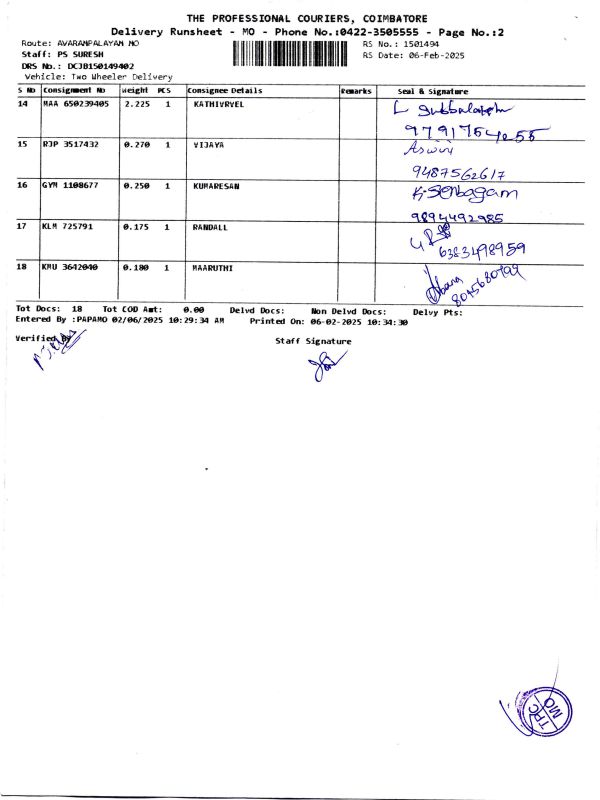 THE PROFESSIONAL COURIERS, COIMBATORE
Delivery Runsheet - MO - Phone No.:0422-3505555 - Page No.:2
Route: AVARAMPALAYAM MO RS No.: 1501494
Staff: PS SURESH RS Date: 06-Feb-2025
DRS No.: DCJB150149402
Vehicle: Two Wheeler Delivery
S No Consignment No Weight PCS Consignee Details Remarks Seal & Signature
14 MAA 650239405 2.225 1 KATHIRVEL L
9791754255
15 RJP 3517432 0.270 1 VIJAYA Aswini
9487562617
16 GYM 1108677 0.250 1 KUMARESAN K. Senbagam
9894492985
17 KLM 725791 0.175 1 RANDALL
6383498959
18 KMU 3642040 0.180 1 MAARUTHI
Tot Docs: 18 Tot COD Amt: 0.00 Delvd Docs: Non Delvd Docs: Delvy Pts:
Entered By :PAPAMO 02/06/2025 10:29:34 AM Printed On: 06-02-2025 10:34:30
Verified By Staff Signature
TPC
MO